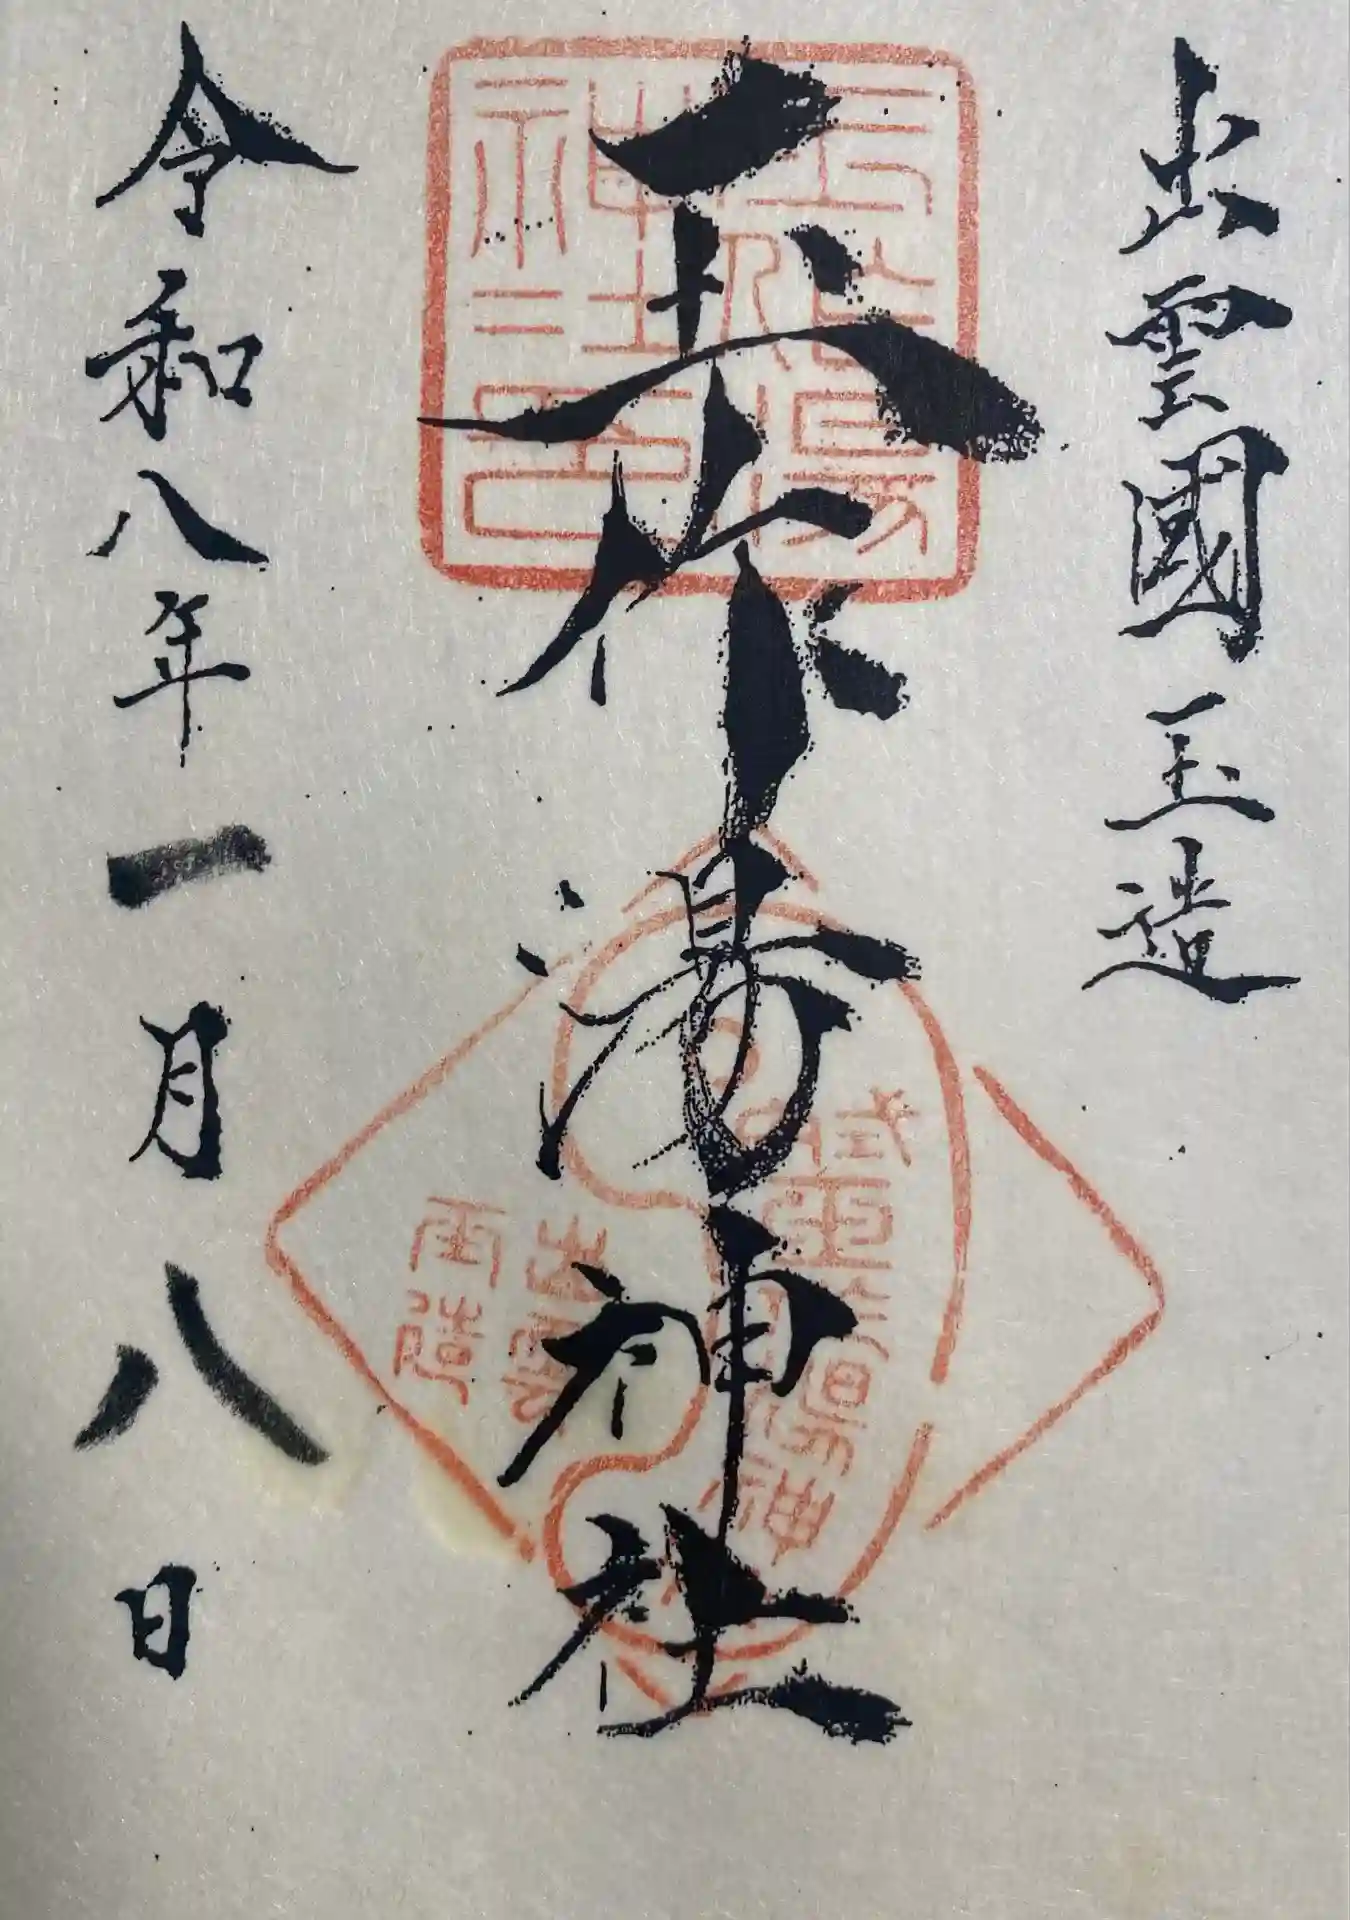 出雲國玉造
玉作湯神社
令和八年一月八日
玉作湯神社之印
出雲
玉造
式内
玉作湯神社